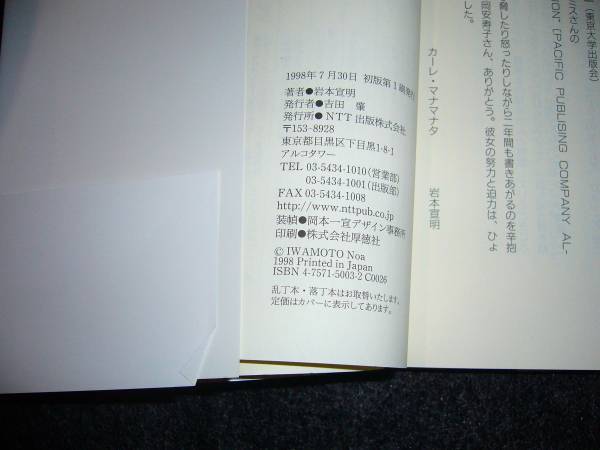 （東京大学出版会）
ミスさんの
ION" (PACIFIC PUBLISING COMPANY AL-
脅したり怒ったりしながら二年間も書きあがるのを辛抱
岡安寿子さん、ありがとう。彼女の努力と迫力は、ひょ
した。
カーレ・マナマナタ
岩本宣明
1998年7月30日 初版第1刷発行
著者●岩本宣明
発行者●吉田 肇
発行所●NTT出版株式会社
〒153-8928
東京都目黒区下目黒1-8-1
アルコタワー
TEL 03-5434-1010（営業部）
03-5434-1001（出版部）
FAX 03-5434-1008
http://www.nttpub.co.jp
装幀●岡本一宣デザイン事務所
印刷●株式会社厚徳社
© IWAMOTO Noa
1998 Printed in Japan
ISBN 4-7571-5003-2 C0026
乱丁本・落丁本はお取替いたします。
定価はカバーに表示してあります。